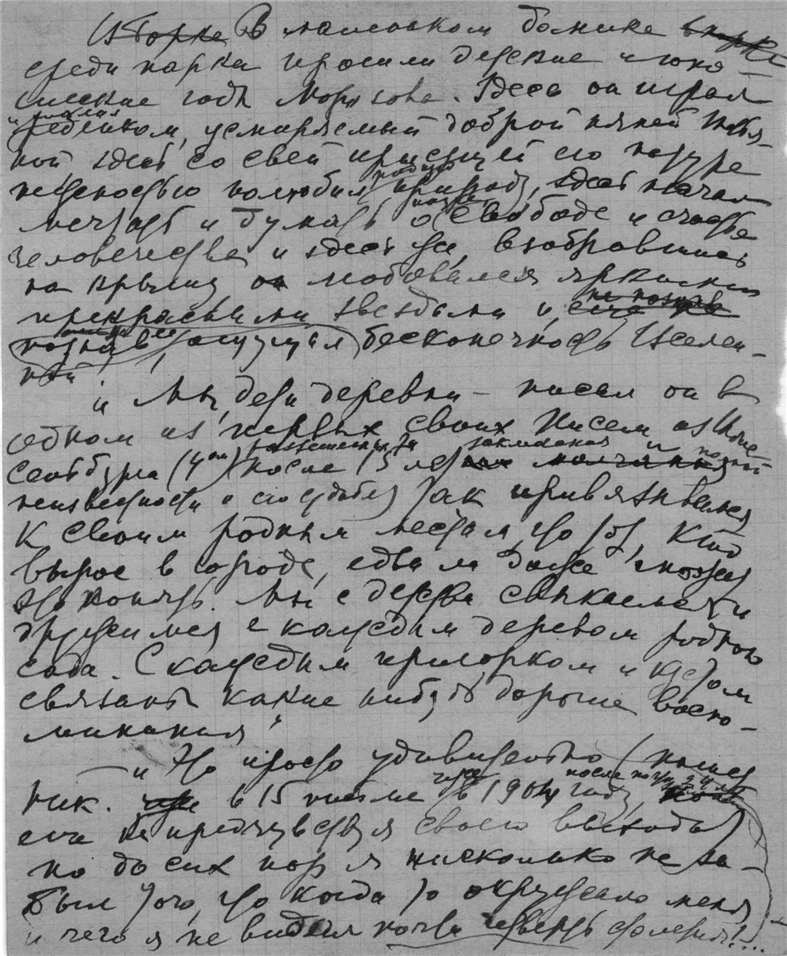 В маленьком домике
среди парка прошли детские и юно-
шеские годы Морозова. Здесь он играл
ребёнком, усмиряемый доброй няней Татья-
ной здесь со всей присущей его натуре
нежностью полюбил природу, здесь начал
мечтать и думать о свободе и счастье
человечества и здесь же, взобравшись
на крышу он любовался яркими
прекрасными звёздами и,
ощущал бесконечность вселен-
ной
"Мы, дети деревни – писал он в
одном из первых своих писем из Шлис-
сельбурга после 13 лет и полной
неизвестности о его судьбе, так привязываемся
к своим родным местам, что тот, кто
вырос в городе, едва ли даже может
это понять. Мы с детства свыкаемся и
дружимся с каждым деревом родного
сада. С каждым пригорком и кустом
связаны какие нибудь дорогие воспо-
минания"
"Это просто удивительно (пишет
Ник. в 15 письме в 1904 году,
ещё не предчувствуя своего выхода)
но до сих пор я нисколько не за-
был того, что когда то окружало меня
и чего я не видел почти четверть столетия!...